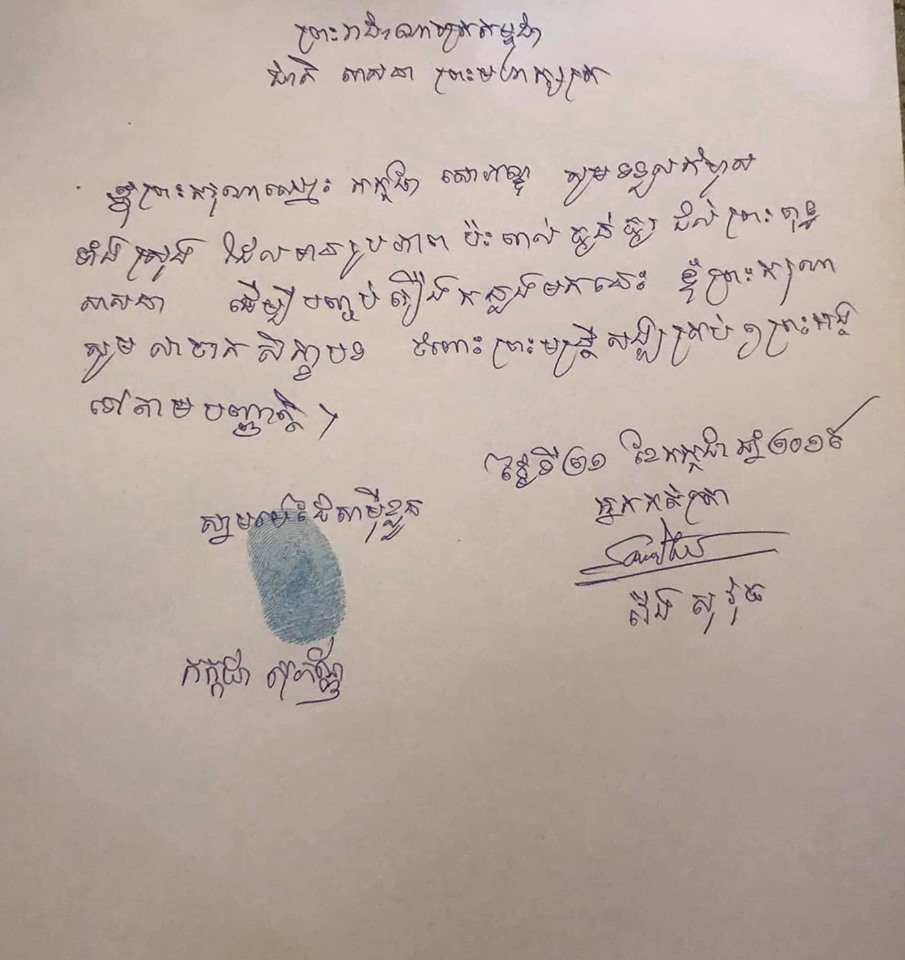 ព្រះរាជាណាចក្រកម្ពុជា
ជាតិ សាសនា ព្រះមហាក្សត្រ
ខ្ញុំព្រះករុណាឈ្មោះ កក្កដា សោភ័ណ្ឌ សូមទទួលកំហុស
ទាំងស្រុង ដែលមានរូបភាព ប៉ះពាល់ធ្ងន់ធ្ងរ ដល់ព្រះពុទ្ធ
សាសនា ដើម្បីបញ្ចប់រឿងកន្លងមកនេះ ខ្ញុំព្រះករុណា
សូមលាចាកសិក្ខាបទ ចំពោះព្រះមន្ត្រីសង្ឃគ្រប់ៗព្រះអង្គ
ទៅតាមបញ្ញត្តិ។
ថ្ងៃទី២១ ខែកក្កដា ឆ្នាំ២០១៩
ស្នាមមេដៃសាមុីខ្លួន
អ្នកកត់ត្រា
ប៉ឹង សុវុធ
កក្កដា សុភ័ណ្ឌ